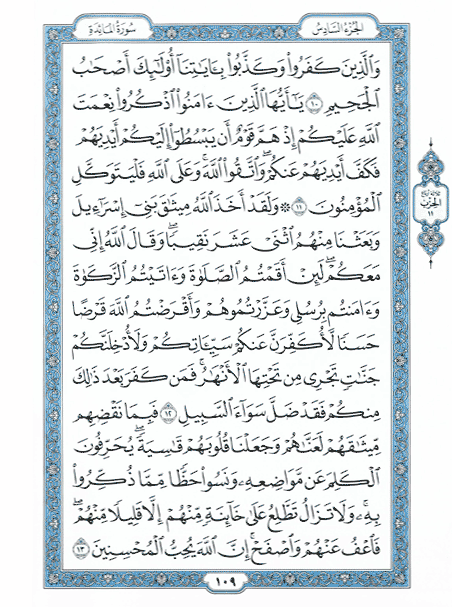 الجُزءُ السَّادِسُ
سُورَةُ المَائِدَةِ
وَالَّذِينَ كَفَرُوا۟ وَكَذَّبُوا۟ بِـَٔايَـٰتِنَآ أُو۟لَـٰٓئِكَ أَصْحَـٰبُ
ٱلْجَحِيمِ ١٠ يَـٰٓأَيُّهَا ٱلَّذِينَ ءَامَنُوا۟ ٱذْكُرُوا۟ نِعْمَتَ
ٱللَّهِ عَلَيْكُمْ إِذْ هَمَّ قَوْمٌ أَن يَبْسُطُوٓا۟ إِلَيْكُمْ أَيْدِيَهُمْ
فَكَفَّ أَيْدِيَهُمْ عَنكُمْ ۖ وَٱتَّقُوا۟ ٱللَّهَ ۚ وَعَلَى ٱللَّهِ فَلْيَتَوَكَّلِ
ٱلْمُؤْمِنُونَ ١١ ۞ وَلَقَدْ أَخَذَ ٱللَّهُ مِيثَـٰقَ بَنِىٓ إِسْرَٰٓءِيلَ
وَبَعَثْنَا مِنْهُمُ ٱثْنَىْ عَشَرَ نَقِيبًا ۖ وَقَالَ ٱللَّهُ إِنِّى
مَعَكُمْ ۖ لَئِنْ أَقَمْتُمُ ٱلصَّلَوٰةَ وَءَاتَيْتُمُ ٱلزَّكَوٰةَ
وَءَامَنتُم بِرُسُلِى وَعَزَّرْتُمُوهُمْ وَأَقْرَضْتُمُ ٱللَّهَ قَرْضًا
حَسَنًا لَّأُكَفِّرَنَّ عَنكُمْ سَيِّـَٔاتِكُمْ وَلَأُدْخِلَنَّكُمْ
جَنَّـٰتٍ تَجْرِى مِن تَحْتِهَا ٱلْأَنْهَـٰرُ ۚ فَمَن كَفَرَ بَعْدَ ذَٰلِكَ
مِنكُمْ فَقَدْ ضَلَّ سَوَآءَ ٱلسَّبِيلِ ١٢ فَبِمَا نَقْضِهِم
مِّيثَـٰقَهُمْ لَعَنَّـٰهُمْ وَجَعَلْنَا قُلُوبَهُمْ قَـٰسِيَةً ۖ يُحَرِّفُونَ
ٱلْكَلِمَ عَن مَّوَاضِعِهِۦ ۙ وَنَسُوا۟ حَظًّا مِّمَّا ذُكِّرُوا۟
بِهِۦ ۚ وَلَا تَزَالُ تَطَّلِعُ عَلَىٰ خَآئِنَةٍ مِّنْهُمْ إِلَّا قَلِيلًا مِّنْهُمْ ۖ
فَٱعْفُ عَنْهُمْ وَٱصْفَحْ ۚ إِنَّ ٱللَّهَ يُحِبُّ ٱلْمُحْسِنِينَ ١٣
١٠٩
ثلاثة أرباع
الحزب
١١